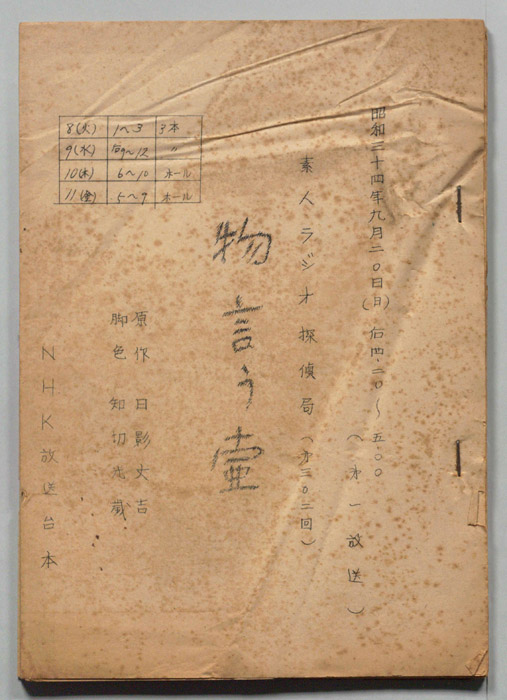 昭和三十四年九月二〇日(日)后四・二〇〜五・〇〇
(才一放送)
素人ラジオ探偵局(才三〇二回)
物言う壷
原作 日影丈吉
脚色 知切光蔵
NHK放送台本
8(火) 1〜3 3本
9(水) 后9〜12 〃
10(木) 6〜10 ホール
11(金) 5〜9 ホール